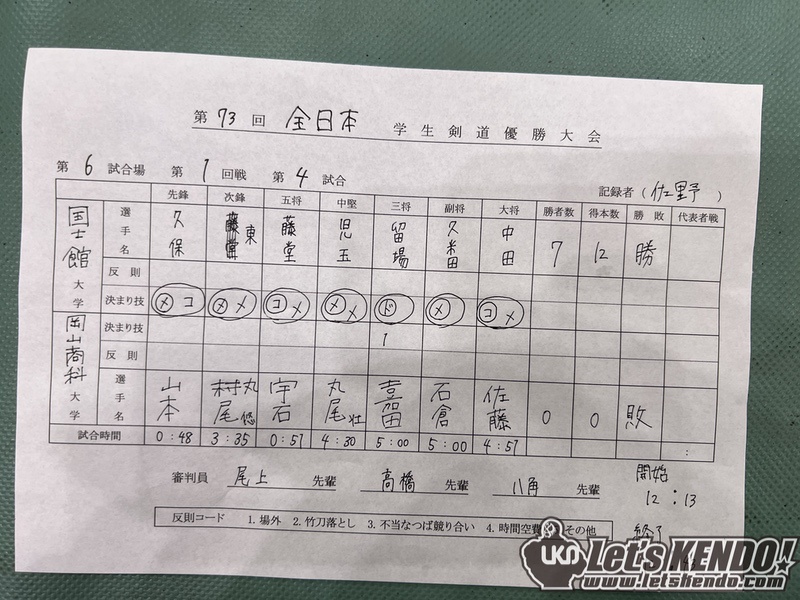 第 73 回 全日本 学生剣道優勝大会
第 6 試合場 第 1 回戦 第 4 試合
記録者 ( 佐野 )
先鋒 次鋒 五将 中堅 三将 副将 大将 勝者数 得本数 勝敗 代表者戦
国士館大学 選手名 久保 東 藤堂 児玉 留場 久米田 中田 7 12 勝
反則
決まり技 メコ メメ コメ メメ ド メ コメ
岡山商科大学 決まり技
反則 1
選手名 山本 村尾 丸悠 宇石 丸尾壮 嘉田 石倉 佐藤 0 0 敗
試合時間 0:48 3:35 0:57 4:30 5:00 5:00 4:57 :
審判員 尾上 先輩 高橋 先輩 八角 先輩
開始
12:13
反則コード 1. 場外 2. 竹刀落とし 3. 不当なつば競り合い 4. 時間空費 その他
終了
UKN Let's KENDO!
www.letskendo.com